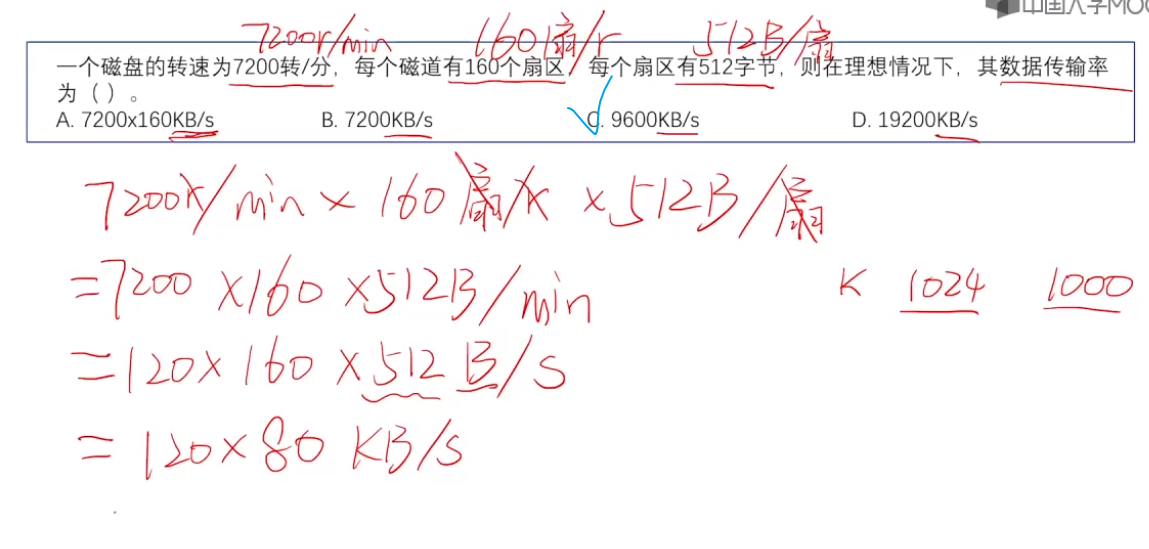 中国大学MOO
7200r/min 160扇/r 512B/扇
一个磁盘的转速为7200转/分，每个磁道有160个扇区，每个扇区有512字节，则在理想情况下，其数据传输率
为（）。
A. 7200x160KB/s B. 7200KB/s C. 9600KB/s D. 19200KB/s
7200r/min × 160扇/r × 512B/扇
=7200 ×160 ×512B/min
K 1024 1000
=120× 160 ×512 B/s
= 120×80 KB/s